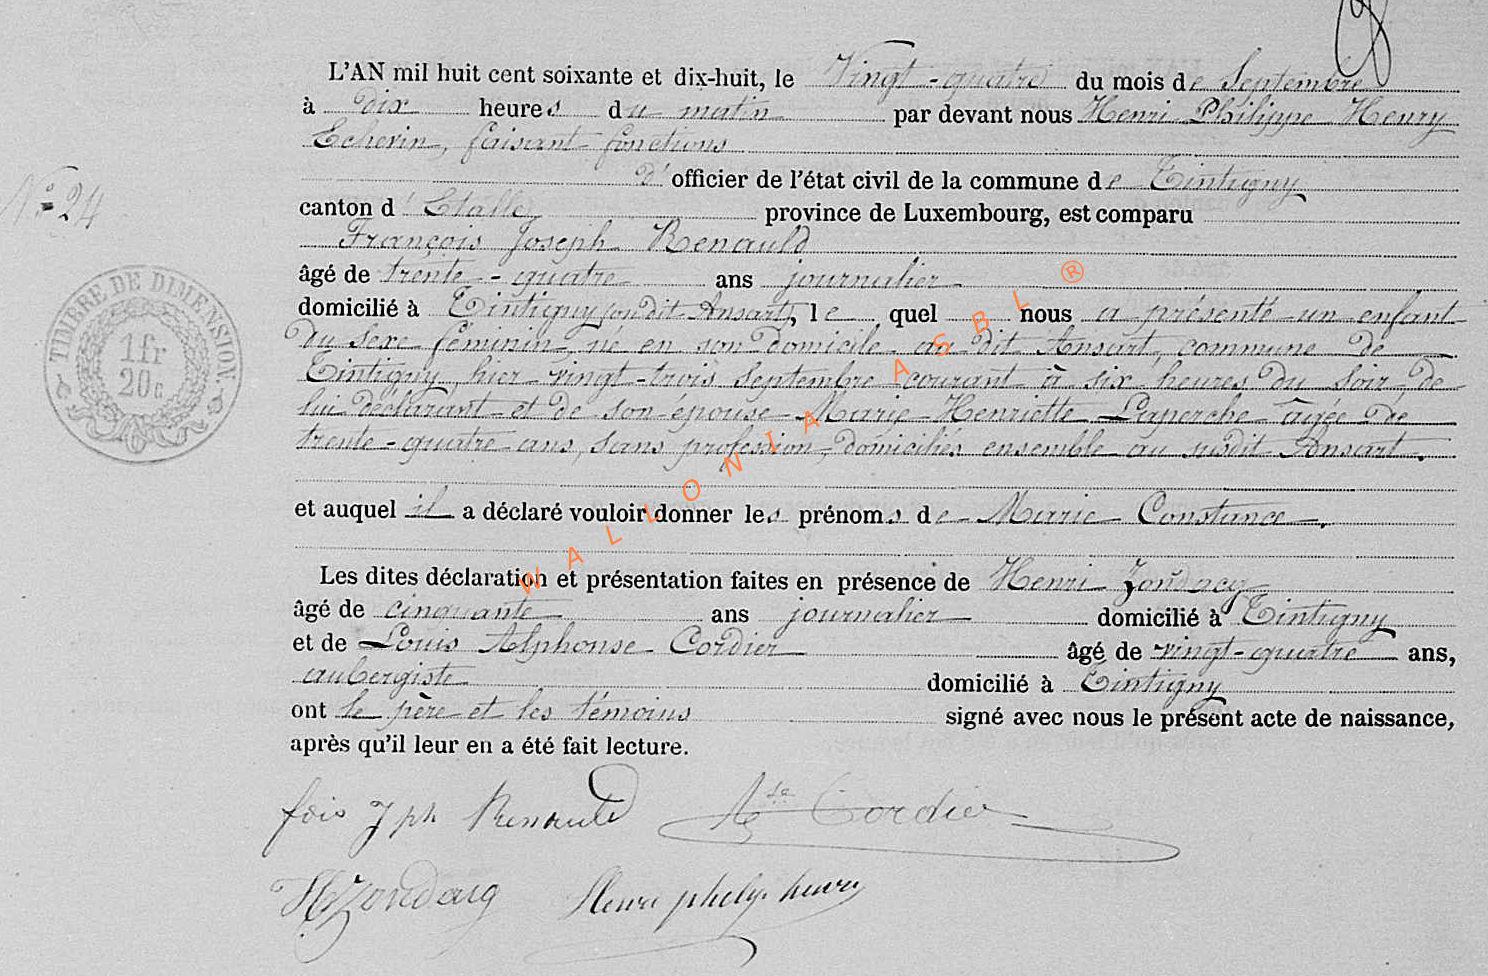 L'AN mil huit cent soixante et dix-huit, le Vingt-quatre du mois de Septembre
à dix heures du matin par devant nous Henri Philippe Henry
Echevin, faisant fonctions
d'officier de l'état civil de la commune de Tintigny
N° 24
canton d'Etalle, province de Luxembourg, est comparu
François Joseph Renauld
âgé de trente-quatre ans journalier
domicilié à Tintigny, lequel nous a présenté un enfant
du sexe féminin, né en son domicile au dit Ansart, commune de
Tintigny, hier vingt-trois Septembre courant à six heures du soir, de
lui déclarant et de son epouse Marie Henriette Laperche âgée de
trente-quatre ans, sans profession, domiciliés ensemble au susdit Ansart.
et auquel il a déclaré vouloir donner les prénoms de Marie Constance.
Les dites déclaration et présentation faites en présence de Henri
âgé de cinquante ans journalier domicilié à Tintigny
et de Louis Alphonse Cordier âgé de vingt-quatre ans,
aubergiste domicilié à Tintigny
ont le père et les témoins signé avec nous le présent acte de naissance,
après qu'il leur en a été fait lecture.
TIMBRE DE DIMENSION.
1 fr
20 c
WALLONIA ASBL ®
fois Jph Renauld
Cordier
HZondacq
Henri henry